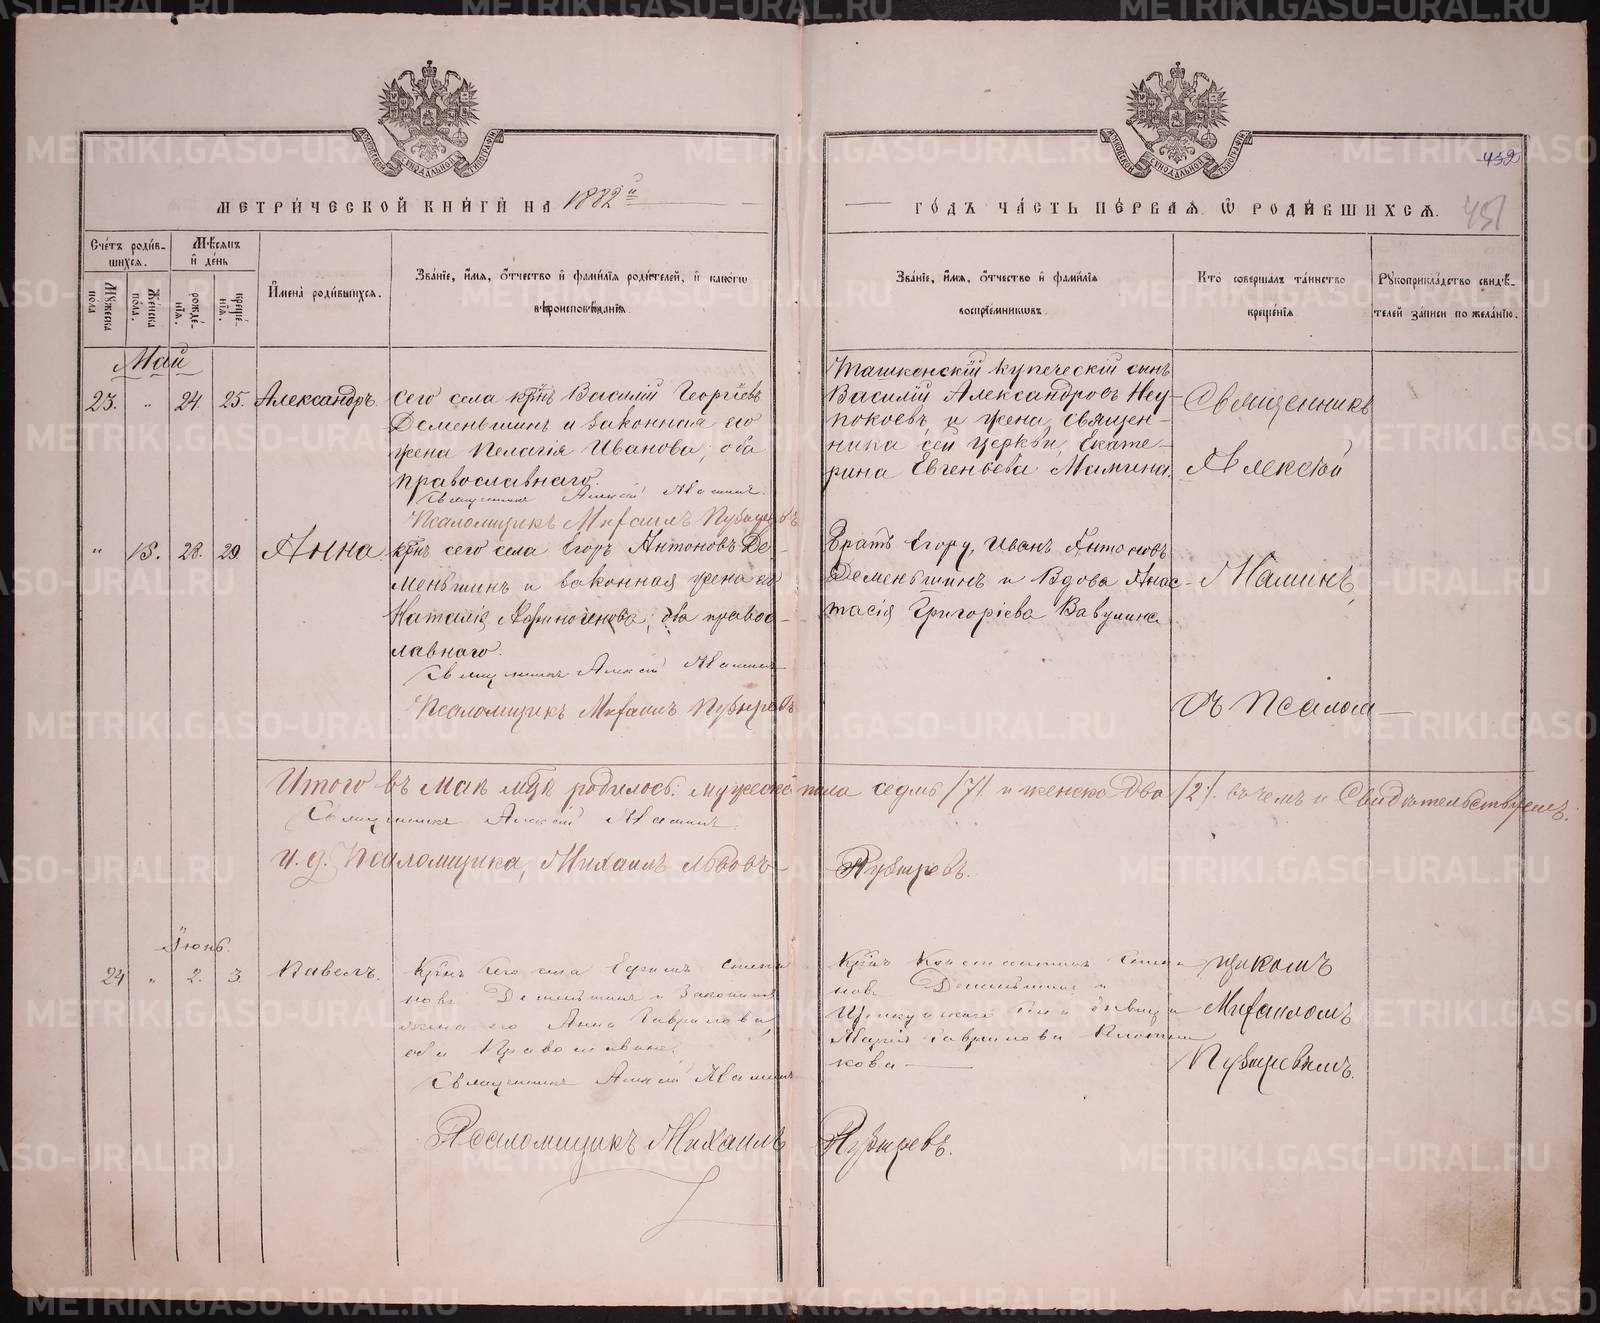 МЕТРИЧЕСКОЙ КНИГИ НА 1882й
ГОДЪ ЧАСТЬ ПЕРВАЯ Ѡ РОДИВШИХСѦ.
432
451
Счетъ родив-
шихся.
Мѣсяцъ
и день
Мужеска пола
Женска пола.
рожде-
нія.
креще-
нія.
Имена родившихся.
Званіе, имя, отчество и фамилія родителей, и какогѡ
вѣроисповѣданія.
Званіе, имя, отчество и фамилія
воспріемниковъ.
Кто совершалъ таинство
крещенія
Рукоприкладство свидѣ-
телей записи по желанію.
Май
23. " 24. 25. Александръ.
сего села крнъ Василій Георгіевъ
Деменьшинъ и законная его
жена Пелагія Иванова; оба
православнаго.
Священникъ Алексій Маминъ.
Псаломщикъ Михаилъ Пузыревъ
Ташкенскій купеческій сынъ
Василій Александровъ Неу-
покоевъ и жена священ-
ника сей церкви, Екате-
рина Евгеньева Мамина.
Священникъ
Алексѣй
" 15. 28. 29. Анна.
крнъ сего села Егоръ Антоновъ Де-
меньшинъ и законная жена его
Наталія Афиногенова; оба право-
славнаго.
Священникъ Алексій Маминъ
Псаломщикъ Михаилъ Пузыревъ
Братъ Егору, Иванъ Антоновъ
Деменьшинъ и Вдова Анас-
тасія Григоріева Вавулина
Маминъ,
съ Псалом-
Итого въ Маѣ мцѣ родилось: мужеска пола седмь /7/ и женска два /2/. въ чемъ и Свидѣтельствуемъ:
Священникъ Алексій Маминъ.
и. д. Псаломщика, Михаилъ Львовъ Пузыревъ.
Іюнь.
24 " 2. 3. Павелъ.
Крнъ сего села Ефимъ Степа
новъ Деменьшинъ и Законная
жена его Анна Гаврилова,
оба Православнаго.
Священникъ Алексій Маминъ
Крнъ Константинъ Степа
новъ Деменьшинъ и
села дѣвица
Марія Гаврилова
кова
щикомъ
Михаиломъ
Пузыревымъ.
Псаломщикъ Михаилъ Пузыревъ.